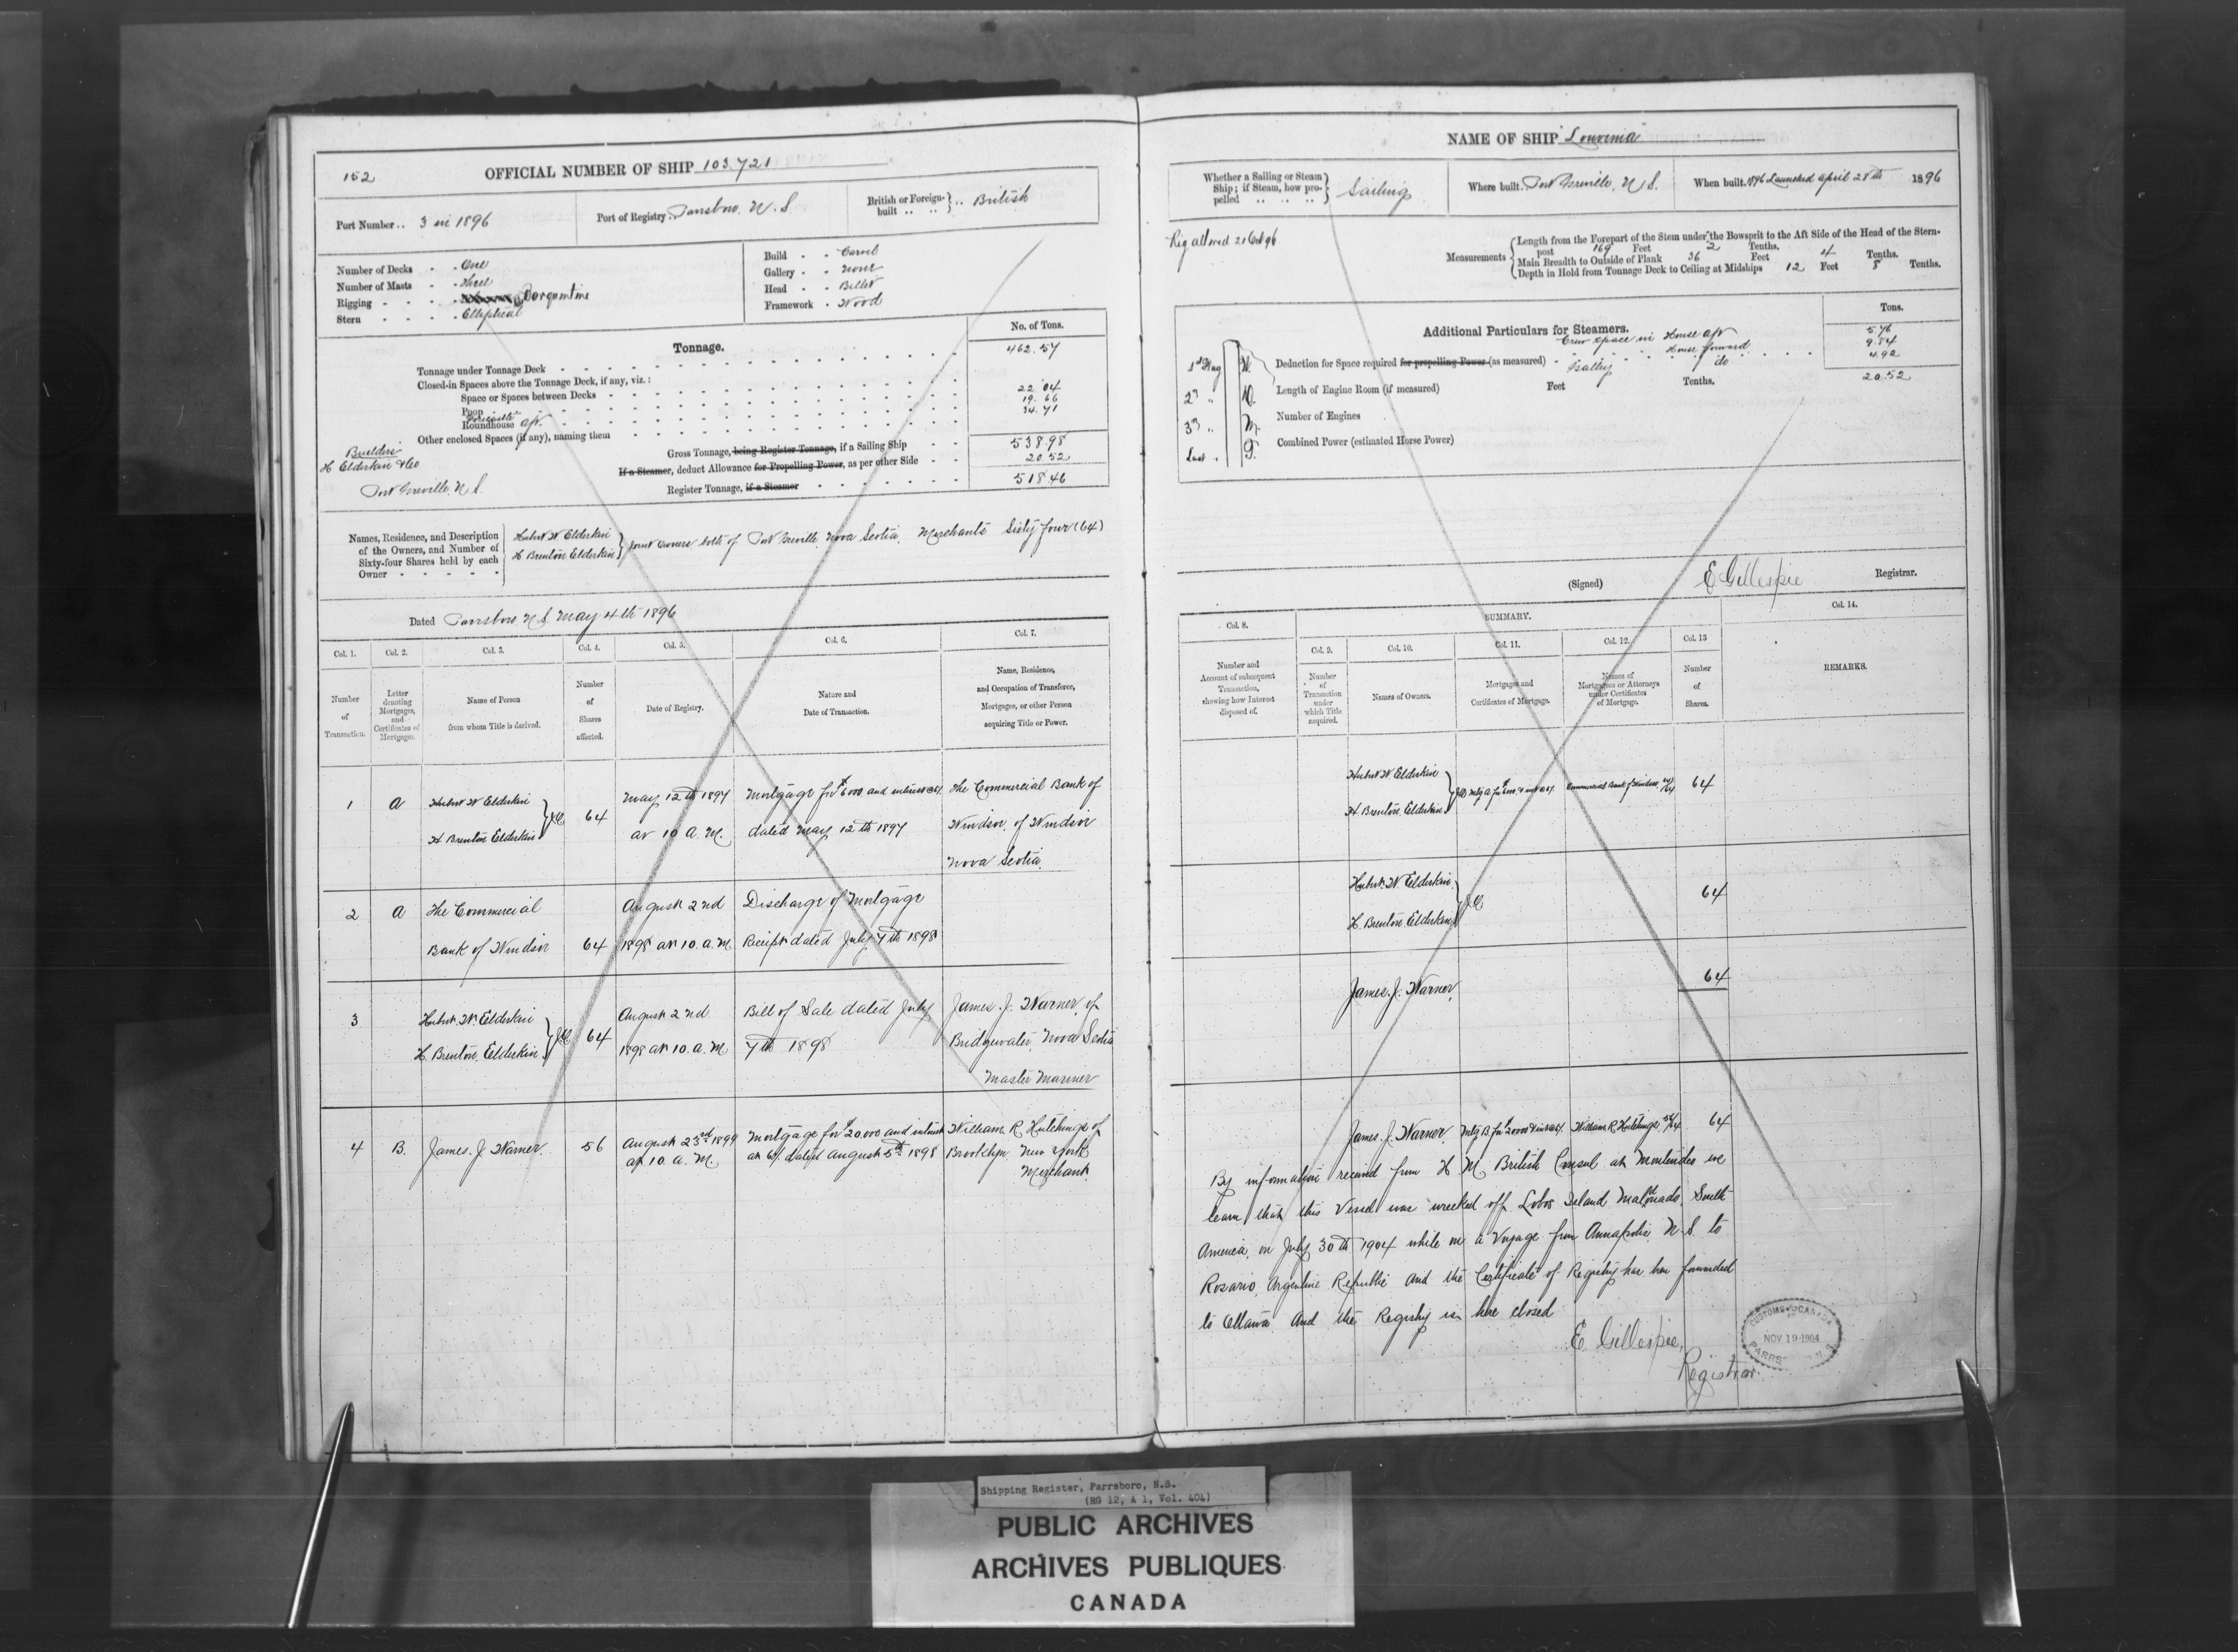 152
OFFICIAL NUMBER OF SHIP 103.721
Port Number .. 3 in 1896
Port of Registry Parrsboro, N.S
British or Foreign-built .. .. } .. British
Number of Decks - - One
Number of Masts - - Three
Rigging - - - - Barquentine
Stern - - - - Elliptical
Build - - Carvel
Gallery - - None
Head - - Billet
Framework - Wood
Tonnage.
No. of Tons.
Tonnage under Tonnage Deck 462.57
Closed-in Spaces above the Tonnage Deck, if any, viz.:
Space or Spaces between Decks
Poop 22.04
Forecastle 19.66
Roundhouse aft. 34.71
Other enclosed Spaces (if any), naming them
Gross Tonnage, being Register Tonnage, if a Sailing Ship - - 538.98
If a Steamer, deduct Allowance for Propelling Power, as per other Side - - 20.52
Register Tonnage, if a Steamer 518.46
Builders
H Elderkin & Co
Port Greville, N.S.
Names, Residence, and Description of the Owners, and Number of Sixty-four Shares held by each Owner - - - - -
Hubert W Elderkin
H Brenton Elderkin } Joint Owners both of Port Greville, Nova Scotia, Merchants Sixty four (64)
Dated Parrsboro N.S. May 4th 1896
Col. 1. Col. 2. Col. 3. Col. 4. Col. 5. Col. 6. Col. 7.
Number of Transaction.
Letter denoting Mortgages, and Certificates of Mortgages.
Name of Person from whom Title is derived.
Number of Shares affected.
Date of Registry.
Nature and Date of Transaction.
Name, Residence, and Occupation of Transferee, Mortgagee, or other Person acquiring Title or Power.
1 A Hubert W Elderkin
H Brenton Elderkin } J.O. 64
May 12th 1897
at 10 A.M.
Mortgage for $6000 and interest @
dated May 12th 1897
The Commercial Bank of
Windsor, of Windsor
Nova Scotia.
2 A The Commercial
Bank of Windsor 64
August 2nd
1898 at 10. a.M.
Discharge of Mortgage
Receipt dated July 7th 1898
3 Hubert W. Elderkin
H. Brenton Elderkin } J.O. 64
August 2nd
1898 at 10. a.M
Bill of Sale dated July
7th 1898
James. J. Warner, of
Bridgewater, Nova Scotia
Master Mariner
4 B. James. J. Warner. 56
August 23rd 1899
at 10. a. M.
Mortgage for $20.000 and interest
at 6% dated August 5th 1898
William R Hutchings of
Brooklyn New York
Merchant.
NAME OF SHIP "Louvinia"
Whether a Sailing or Steam Ship; if Steam, how propelled .. .. .. } Sailing
Where built. Port Greville, N S.
When built. 1896 Launched April 28th 1896
Rig altered 21 Oct 96
Measurements
Length from the Forepart of the Stem under the Bowsprit to the Aft Side of the Head of the Stern-
post 169 Feet 2 Tenths.
Main Breadth to Outside of Plank 36 Feet 4 Tenths.
Depth in Hold from Tonnage Deck to Ceiling at Midships 12 Feet 8 Tenths.
Additional Particulars for Steamers.
Tons.
Crew space in House aft 5.76
House forward 9.84
Galley do 4.92
20.52
Deduction for Space required for propelling Power (as measured)
Length of Engine Room (if measured) Feet Tenths.
Number of Engines
Combined Power (estimated Horse Power)
1st Flag W.
2nd "
3rd " M.
Last "
(Signed) E Gillespie Registrar.
SUMMARY.
Col. 8. Col. 9. Col. 10. Col. 11. Col. 12. Col. 13 Col. 14.
Number and Account of subsequent Transaction, showing how Interest disposed of.
Number of Transaction under which Title acquired.
Names of Owners.
Mortgages and Certificates of Mortgage.
Names of Mortgagees or Attorneys under Certificates of Mortgage.
Number of Shares.
REMARKS.
Hubert W Elderkin
H Brenton Elderkin } J.O. Mtg A for Commercial Bank of Windsor 64/64 64
Hubert. W. Elderkin
H. Brenton Elderkin } J.O. 64
James. J. Warner. 64
James. J. Warner. Mtg B for William R Hutchings 56/64 64
By information received from H M British Consul at Montevideo we
learn that this Vessel was wrecked off Lobos Island Maldonado, South
America, on July 30th 1904 while on a Voyage from Annapolis, N.S. to
Rosario, Argentine Republic And the Certificate of Registry has been forwarded
to Ottawa And the Registry is here closed
E. Gillespie,
Registrar.
CUSTOMS CANADA
NOV 19 1904
PARRS
Shipping Register, Parrsboro, N.S.
(RG 12, A 1, Vol. 404)
PUBLIC ARCHIVES
ARCHIVES PUBLIQUES
CANADA